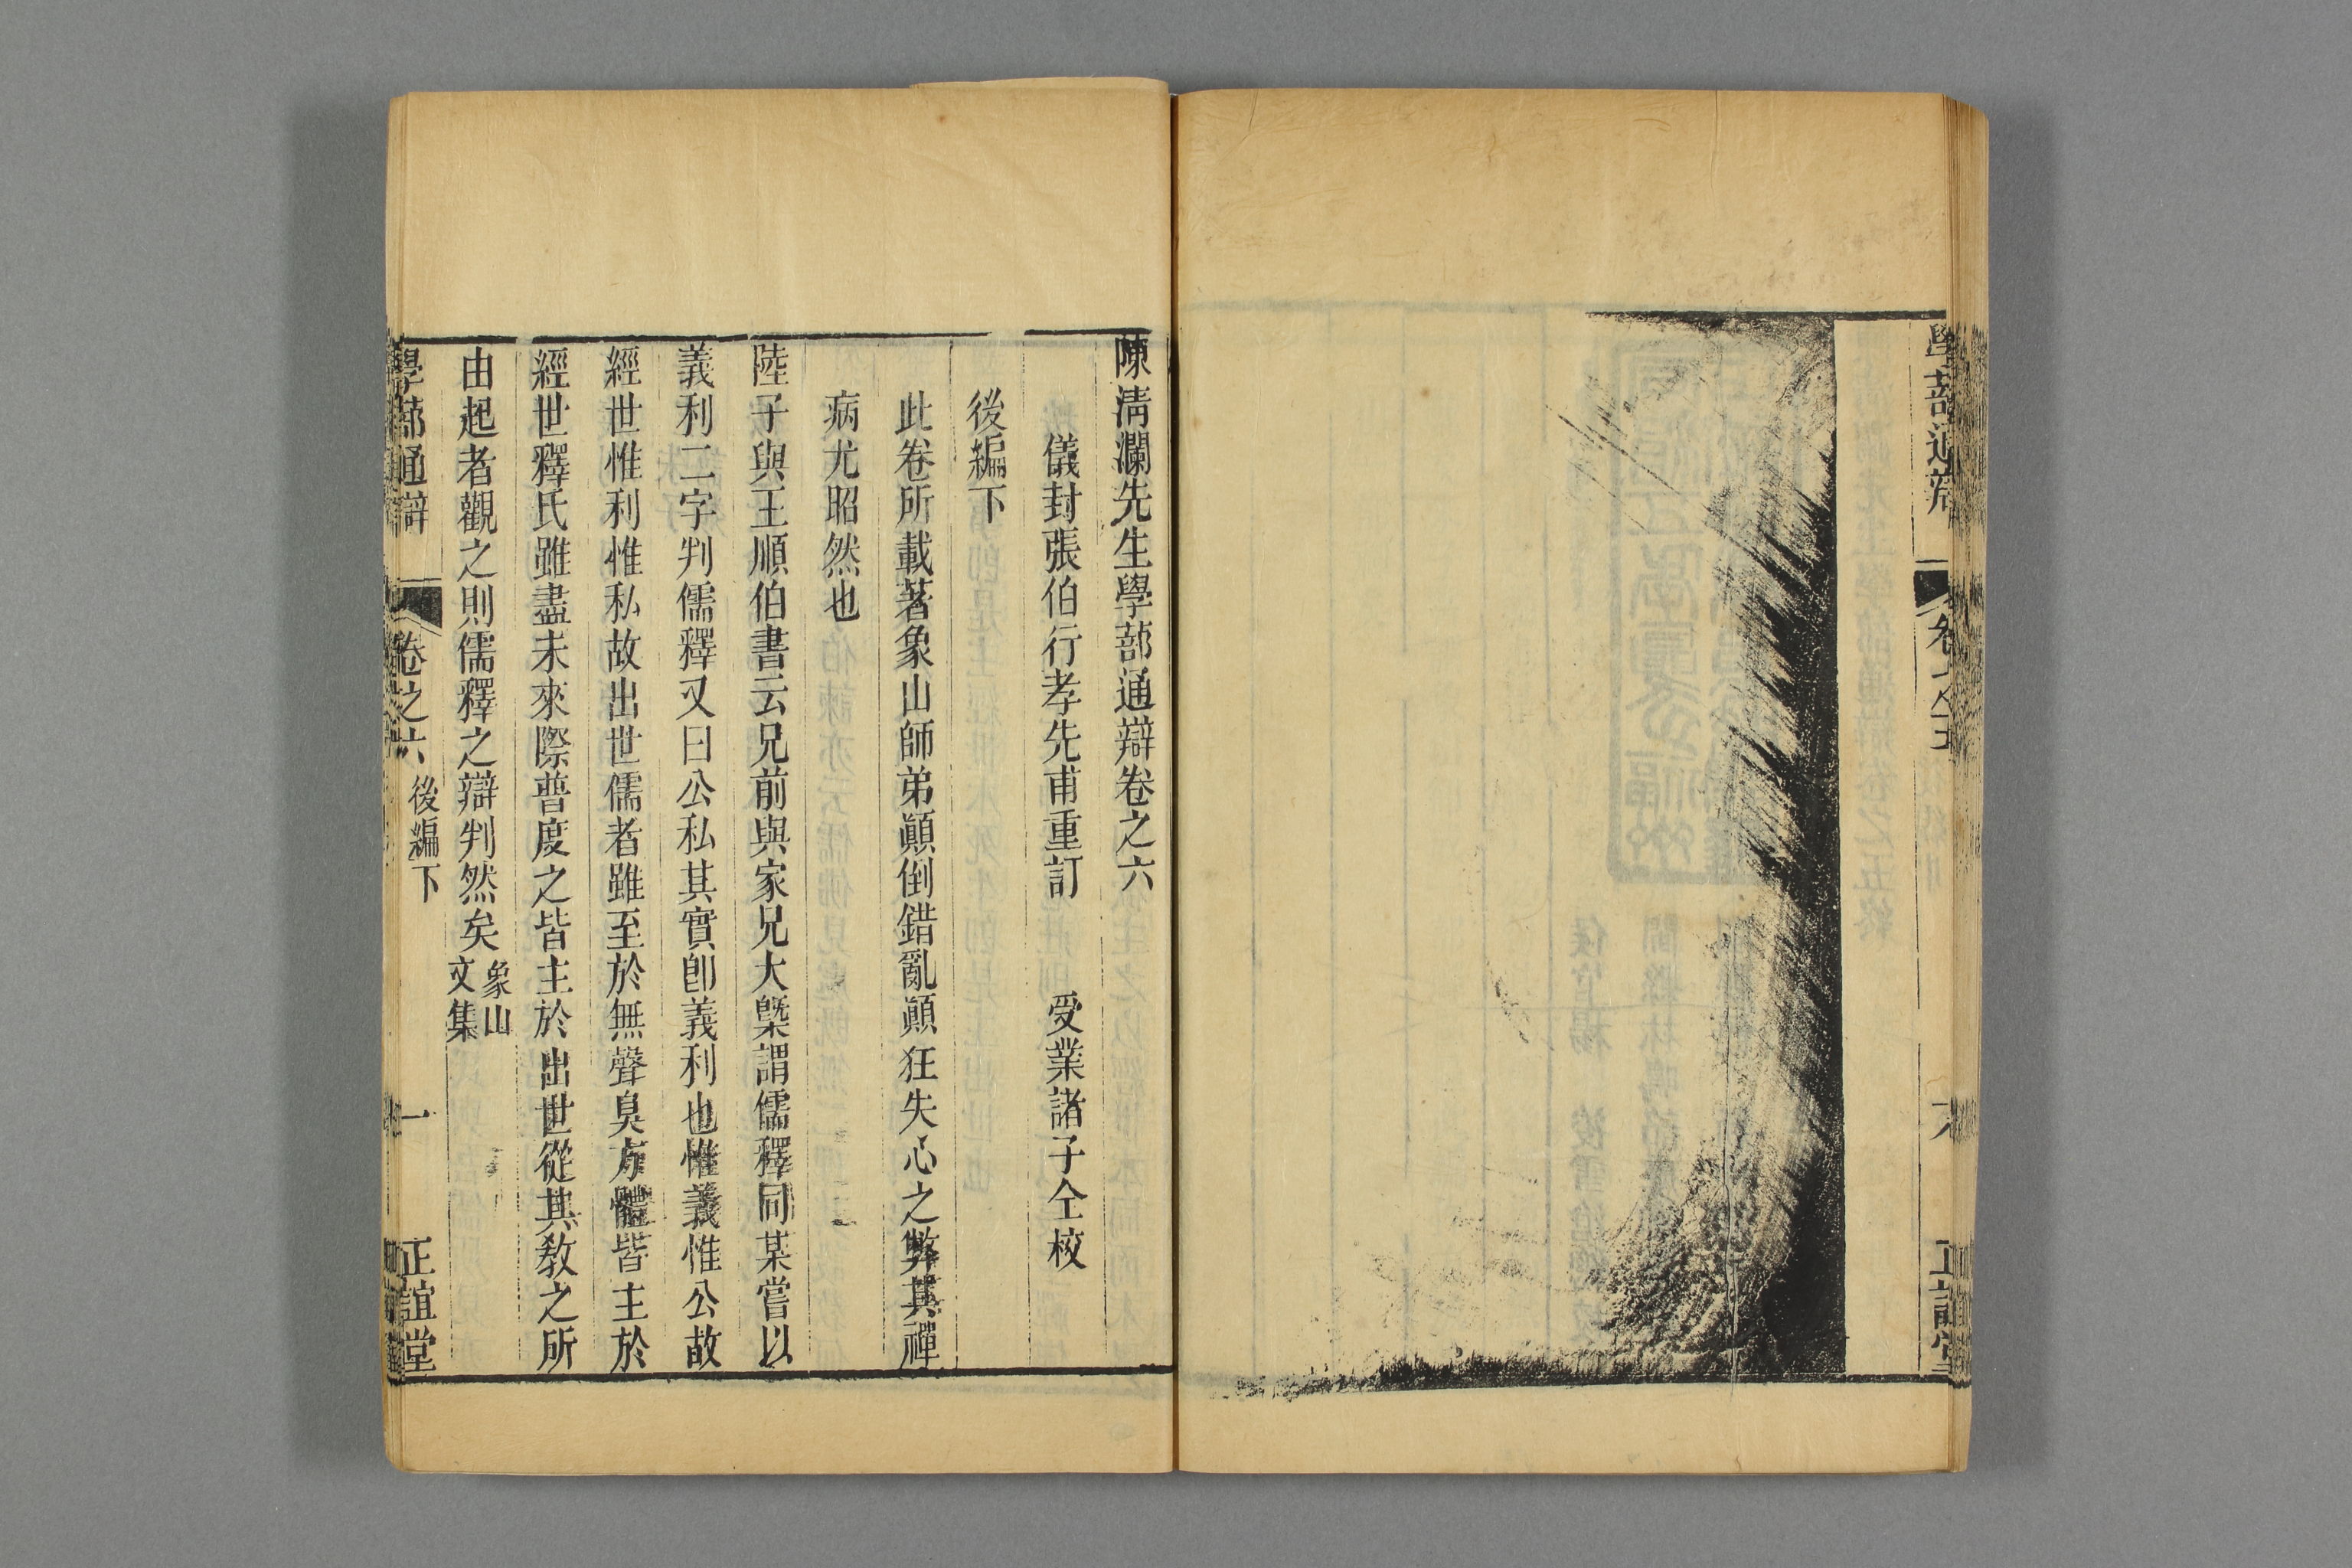 學蔀通辯
正誼堂
陳淸瀾先生學蔀通辯卷之六
儀封張伯行孝先甫重訂 受業諸子仝校
後編下
此卷所載著象山師弟顚倒錯亂顚狂失心之弊其禪
病尤昭然也
陸子與王順伯書云兄前與家兄大槩謂儒釋同某嘗以
義利二字判儒釋又曰公私其實卽義利也惟義惟公故
經世惟利惟私故出世儒者雖至於無聲臭方體皆主於
經世釋氏雖盡未來際普度之皆主於出世從其教之所
由起者觀之則儒釋之辯判然矣 象山
文集
學蔀通辯 卷之六 後編下 一 正誼堂